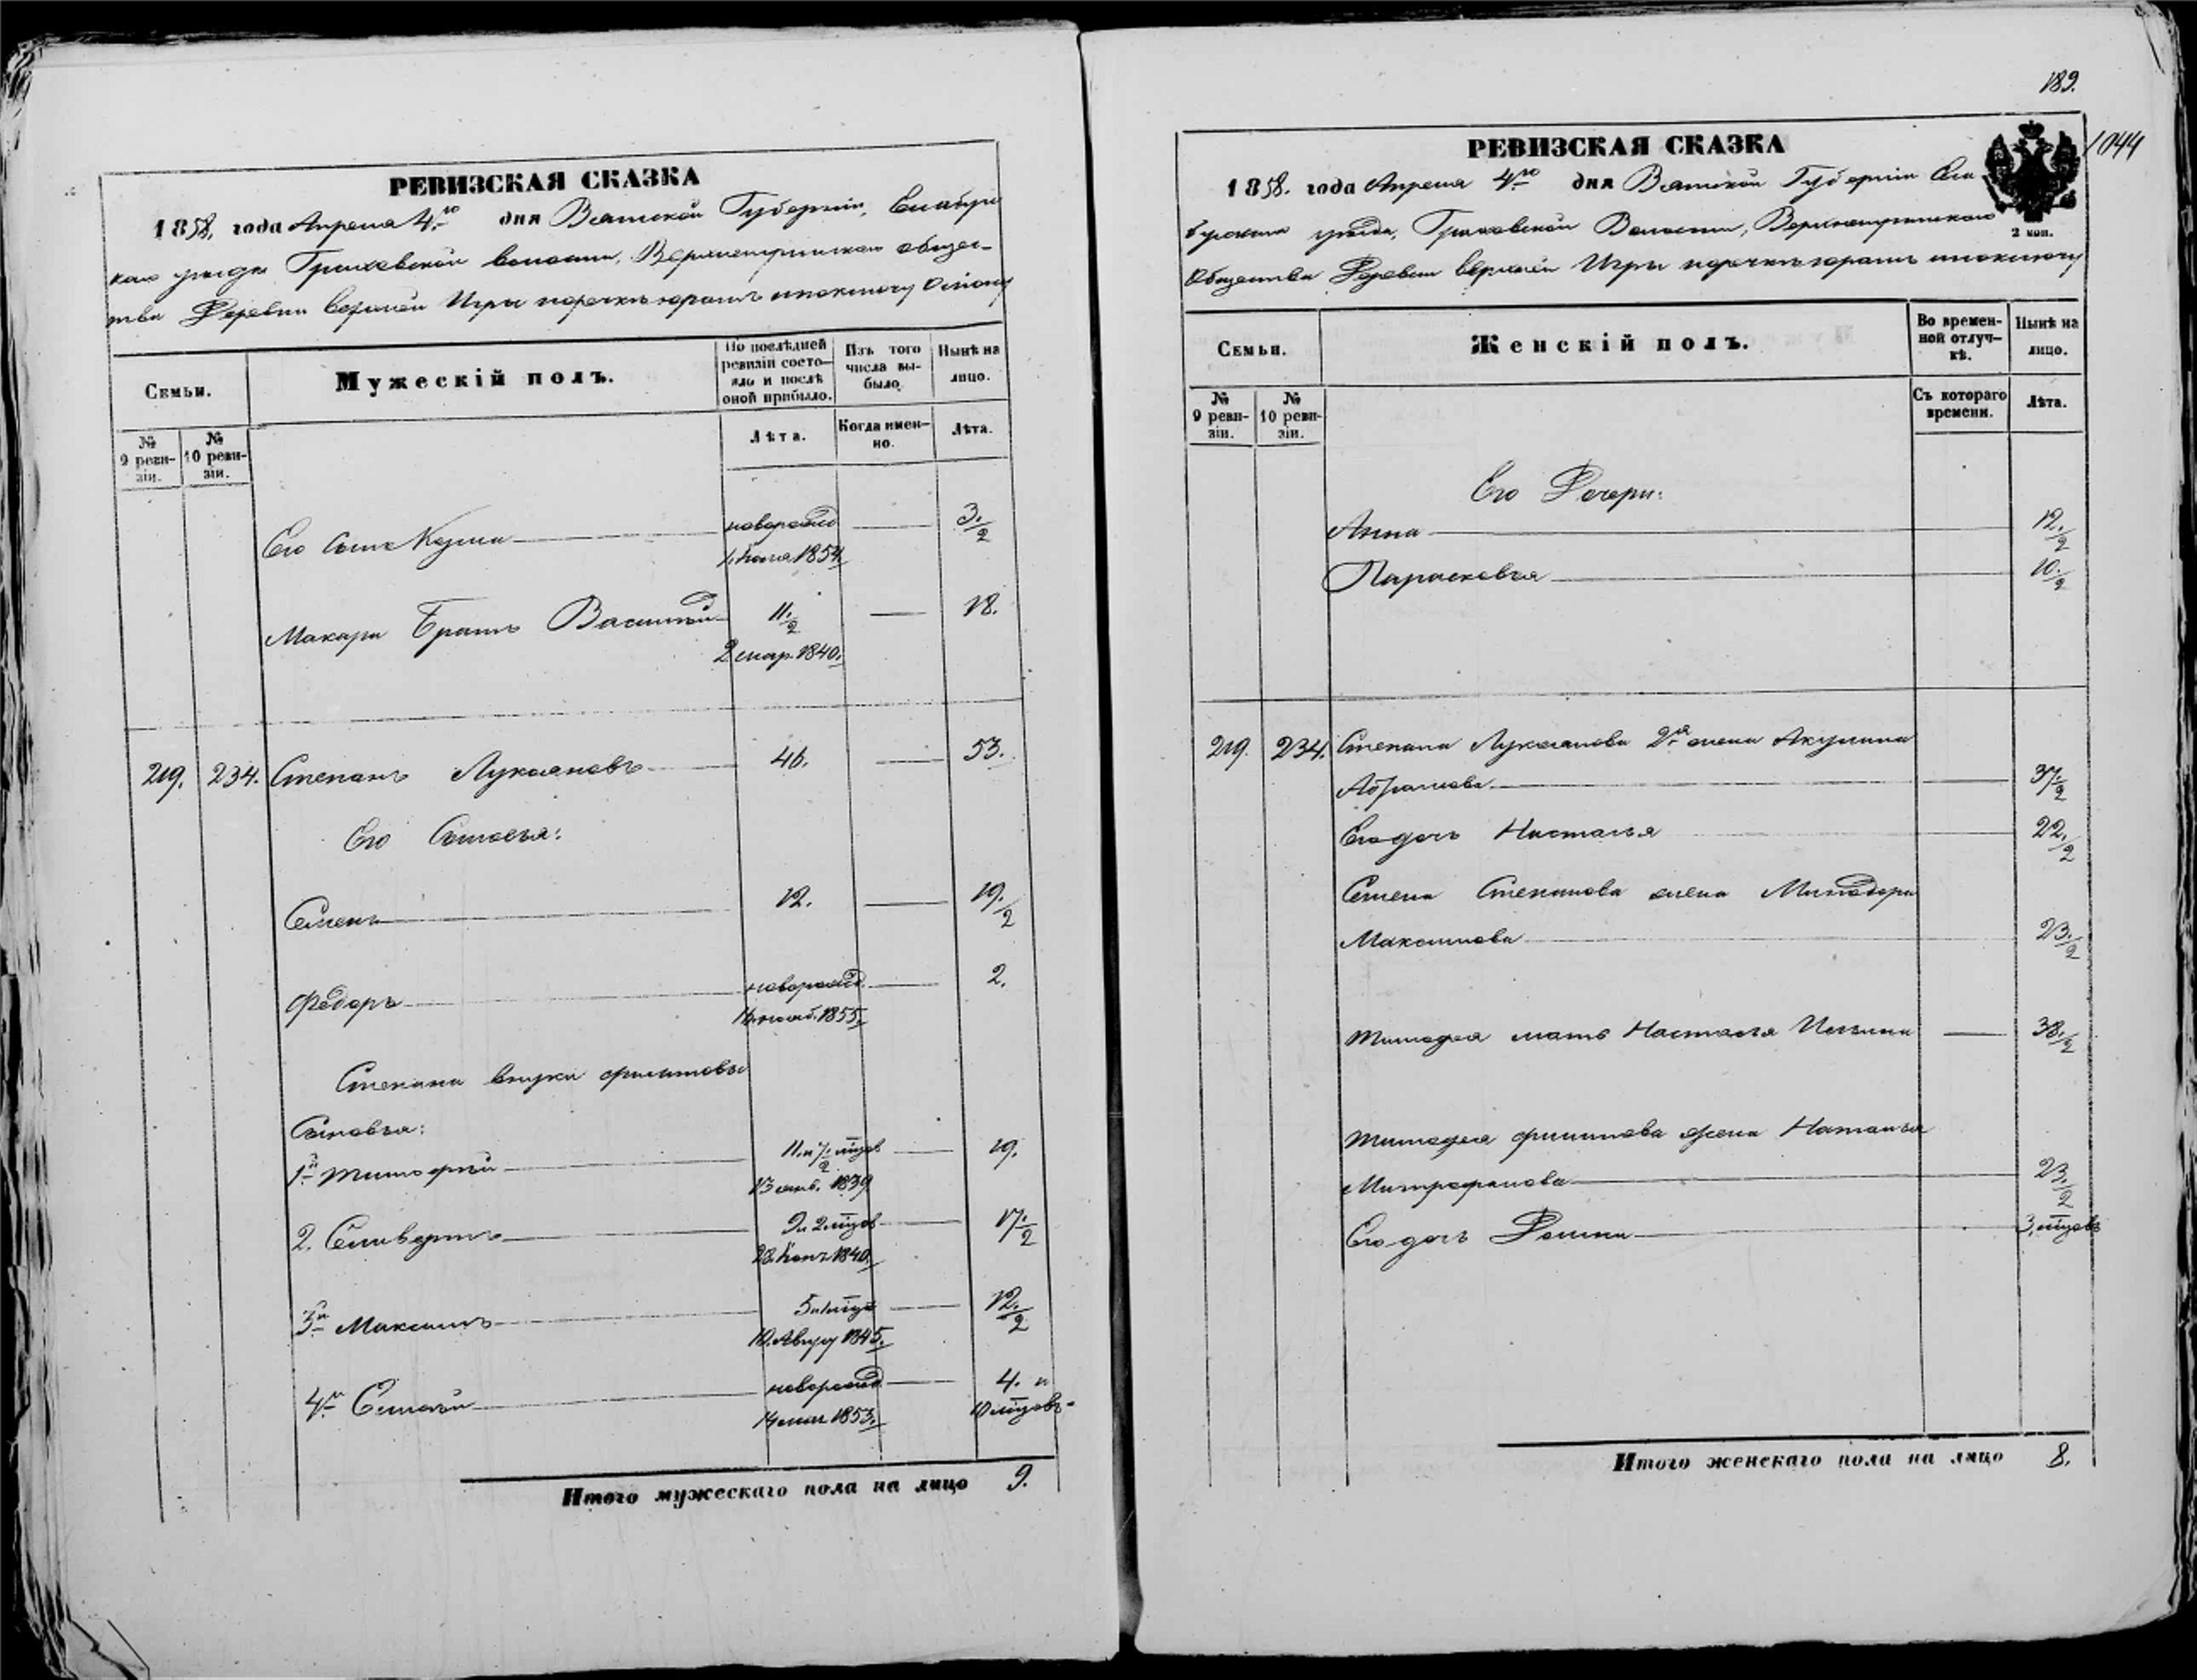 РЕВИЗСКАЯ СКАЗКА
1858. года Апреля 4го дня Вятской Губернии, Елабужс
каго уезда Граховской волости, Верхнеигринскаго общес-
тва Деревни верхней Игры
Семьи.
Мужескій полъ.
По послѣдней ревизіи состояло и послѣ оной прибыло.
Изъ того числа выбыло.
Нынѣ на лицо.
№ 9 ревизіи.
№ 10 ревизіи.
Лѣта.
Когда именно.
Лѣта.
Его сынъ Козма новорожд 3./2
1854.
Макара братъ Василий 11./2 18.
2 мар. 1840.
219. 234. Степанъ Лукояновъ 46. 53.
Его Сыновья:
Семенъ 12. 19./2
Федоръ новорожд. 2.
1855.
Степана внуки филиповы
Сыновья:
1й Тимофей 11. и 7./2 мцов 19.
13 1839
2. Селиверстъ 9 и 2 мцов 17./2
28 1840.
3й Максимъ 5 и мцъ 12./2
10. Август 1845.
4й новорожд 4. и
14 мая 1853. 10 мцовъ
Итого мужескаго пола на лицо 9.
189.
1044
РЕВИЗСКАЯ СКАЗКА
1858. года Апреля 4го дня Вятской Губернии Ела
бужскаго уезда, Граховской Волости, Верхнеигринскаго
2 коп.
Общества Деревни верхней Игры
Семьи.
Женскій полъ.
Во временной отлучкѣ.
Нынѣ на лицо.
№ 9 ревизіи.
№ 10 ревизіи.
Съ котораго времени.
Лѣта.
Его Дочери:
Анна 12./2
Парасковья 10./2
219. 234. Степана Лукоянова 2я жена Акулина
Абрамова 37./2
Его дочь Настасья 22./2
Семена Степанова жена Минодора
Максимова 23./2
Тимофея мать Настасья 38./2
Тимофея филипова жена Наталья
Митрофанова 23./2
Его дочь 3. мцовъ
Итого женскаго пола на лицо 8.